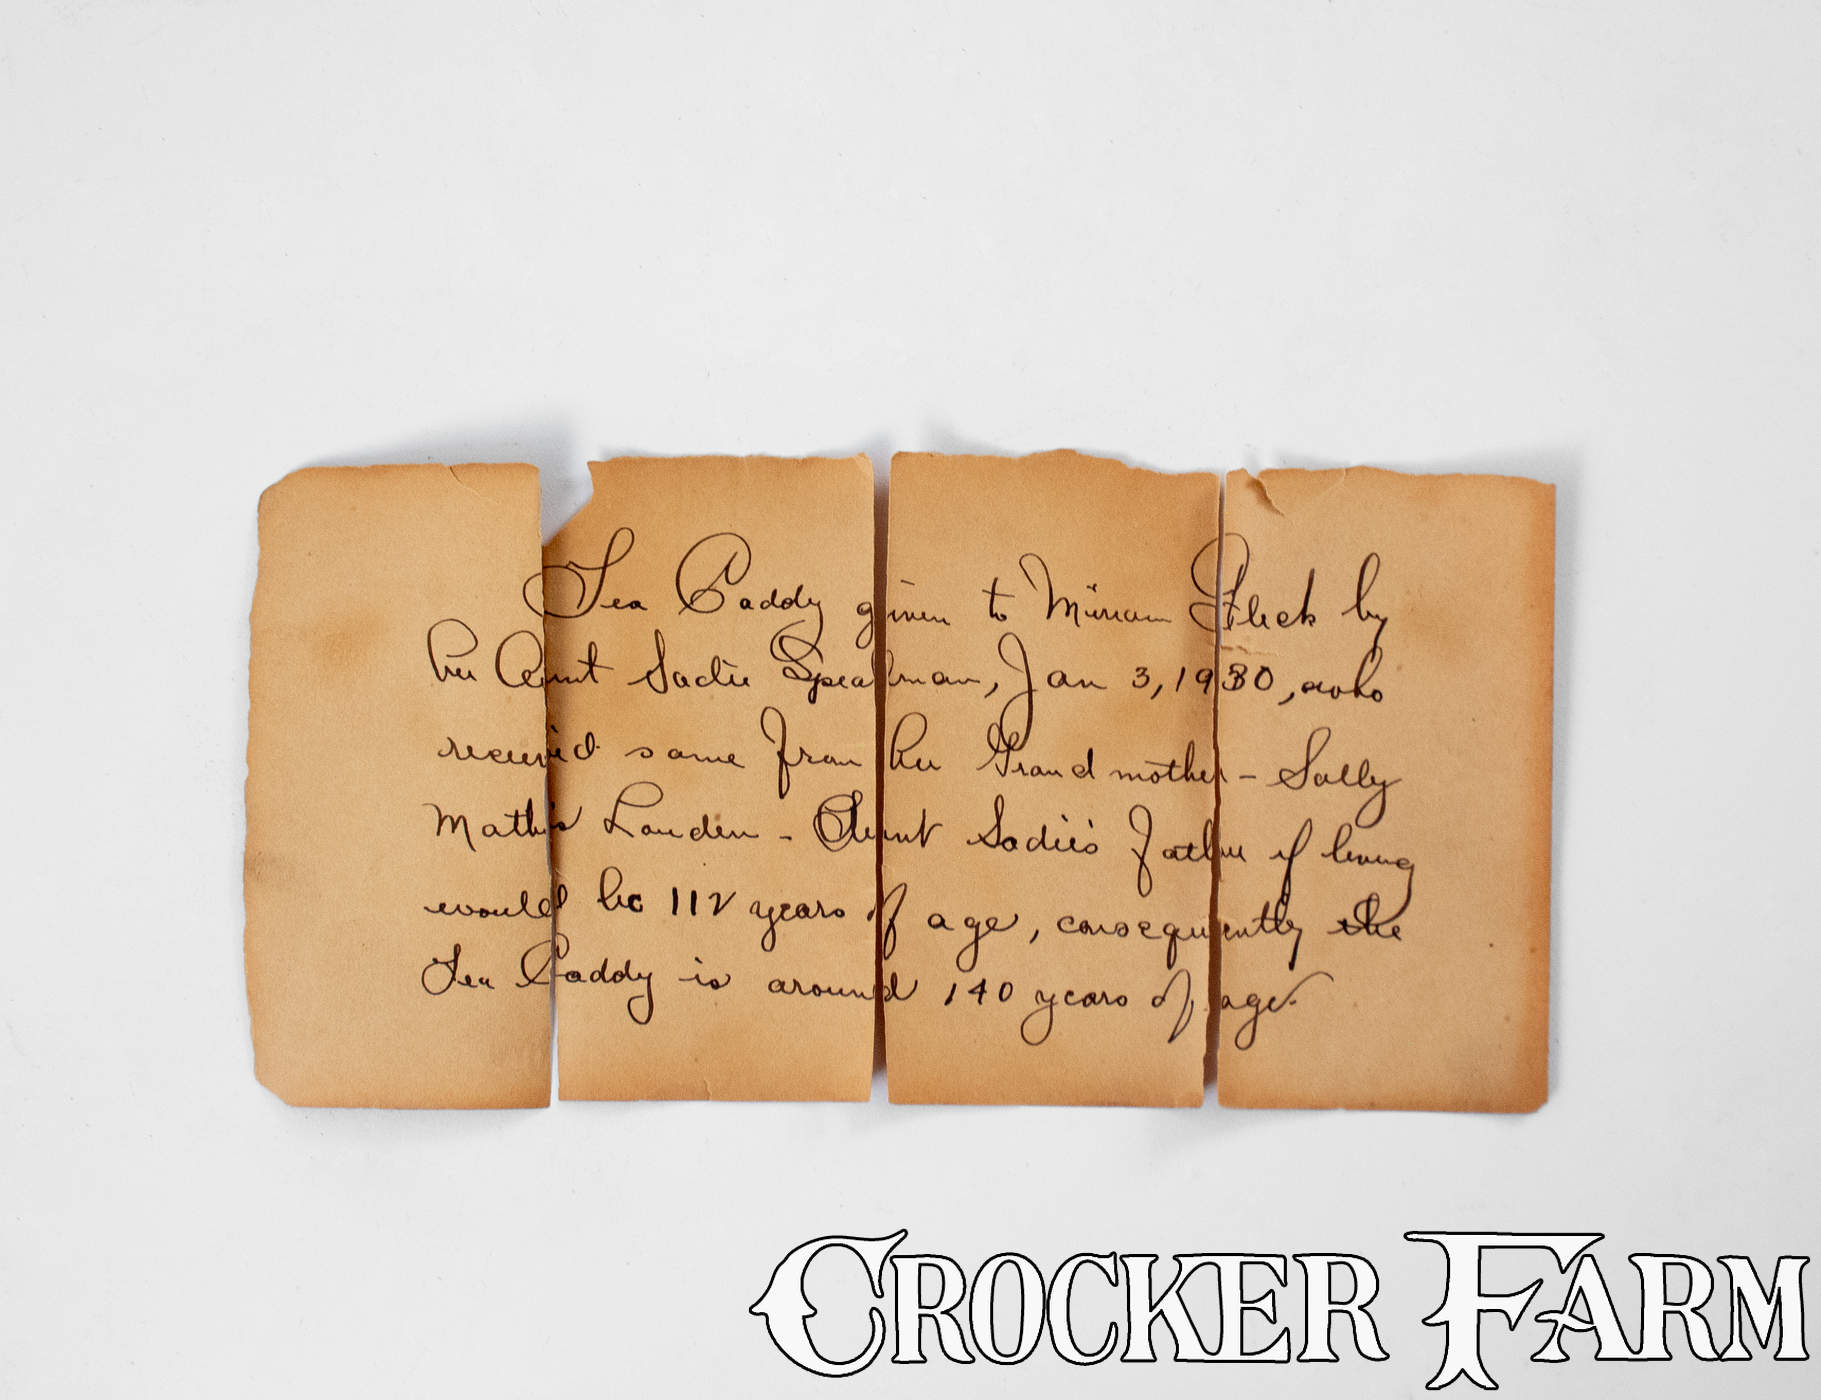 Tea Caddy given to Miriam Fleck by
her Aunt Sadie Spealman, Jan 3, 1930, who
received same from her Grandmother - Sally
Mathis Louden - Aunt Sadie's Father if living
would be 112 years of age, consequently the
Tea Caddy is around 140 years of age.
CROCKER FARM